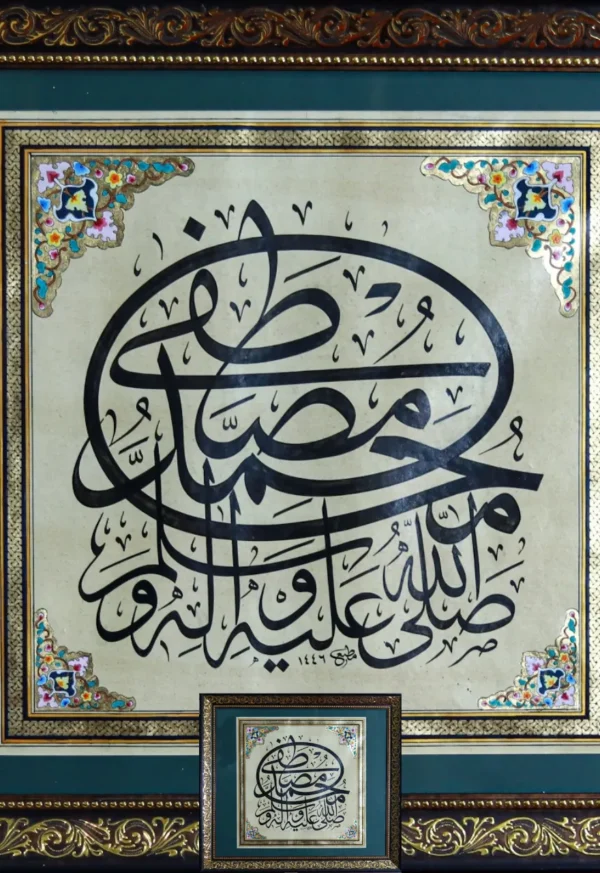 محمد مصطفى
صلى الله عليه وآله وسلم
١٤٤٦
محمد مصطفى
صلى الله عليه وآله وسلم